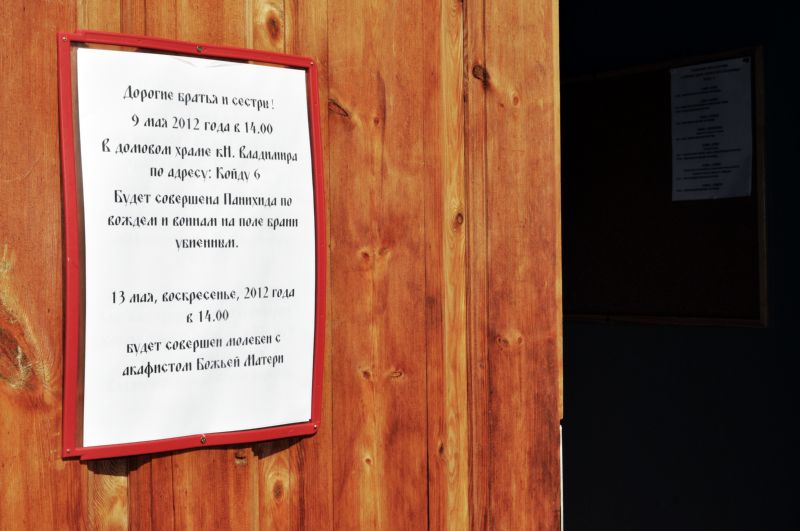 Дорогие братья и сестры!
9 мая 2012 года в 14.00
В домовом храме кн. Владимира
по адресу: Койду 6
Будет совершена Панихида по
вождем и воинам на поле брани
убиенным.
13 мая, воскресенье, 2012 года
в 14.00
будет совершен молебен с
акафистом Божьей Матери